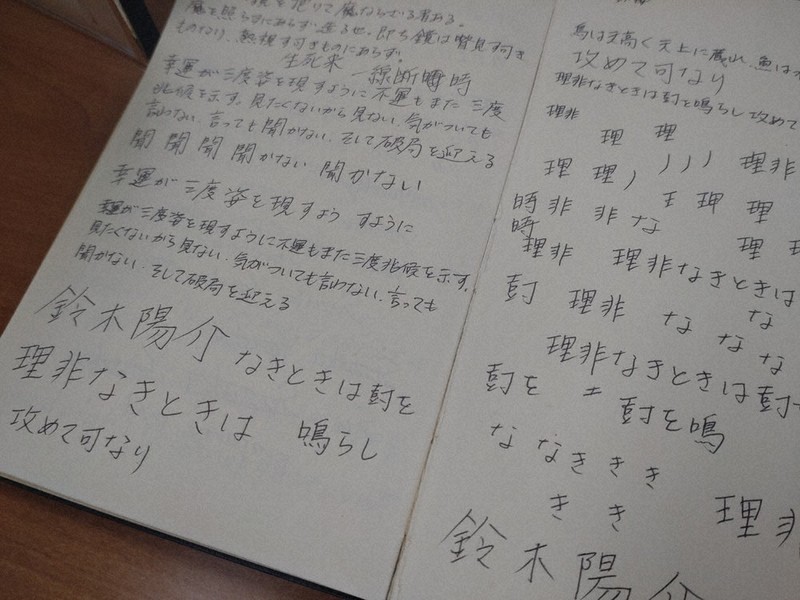 魔を照らすにあらず。造る也。即ち鏡は瞥見す可き
ものなり、熟視す可きものにあらず。
生死来 一線断時 時
幸運が三度姿を現すように不運もまた三度
兆候を示す。見たくないから見ない。気がついても
言わない。言っても聞かない。そして破局を迎える
聞 聞 聞 聞かない 聞かない
幸運が三度姿を現すよう すように
幸運が三度姿を現すように不運もまた三度兆候を示す。
見たくないから見ない。気がついても言わない。言っても
聞かない。そして破局を迎える
鈴木陽介 なきときは 鼓を
理非なきときは 鳴らし
攻めて可なり
鳥は天高く天上に蔵れ、魚は
攻めて可なり
理非なきときは鼓を鳴らし攻めて
理非
理 理
理 理 ノ ノ ノ ノ 理非
時 非 非 な 王 理 理
時
理非 理非なきときは 理
鼓 理非 な な
な な な
理非なきときは鼓
鼓を 士 鼓を鳴
な な な き き き
き き 理非
鈴木陽介